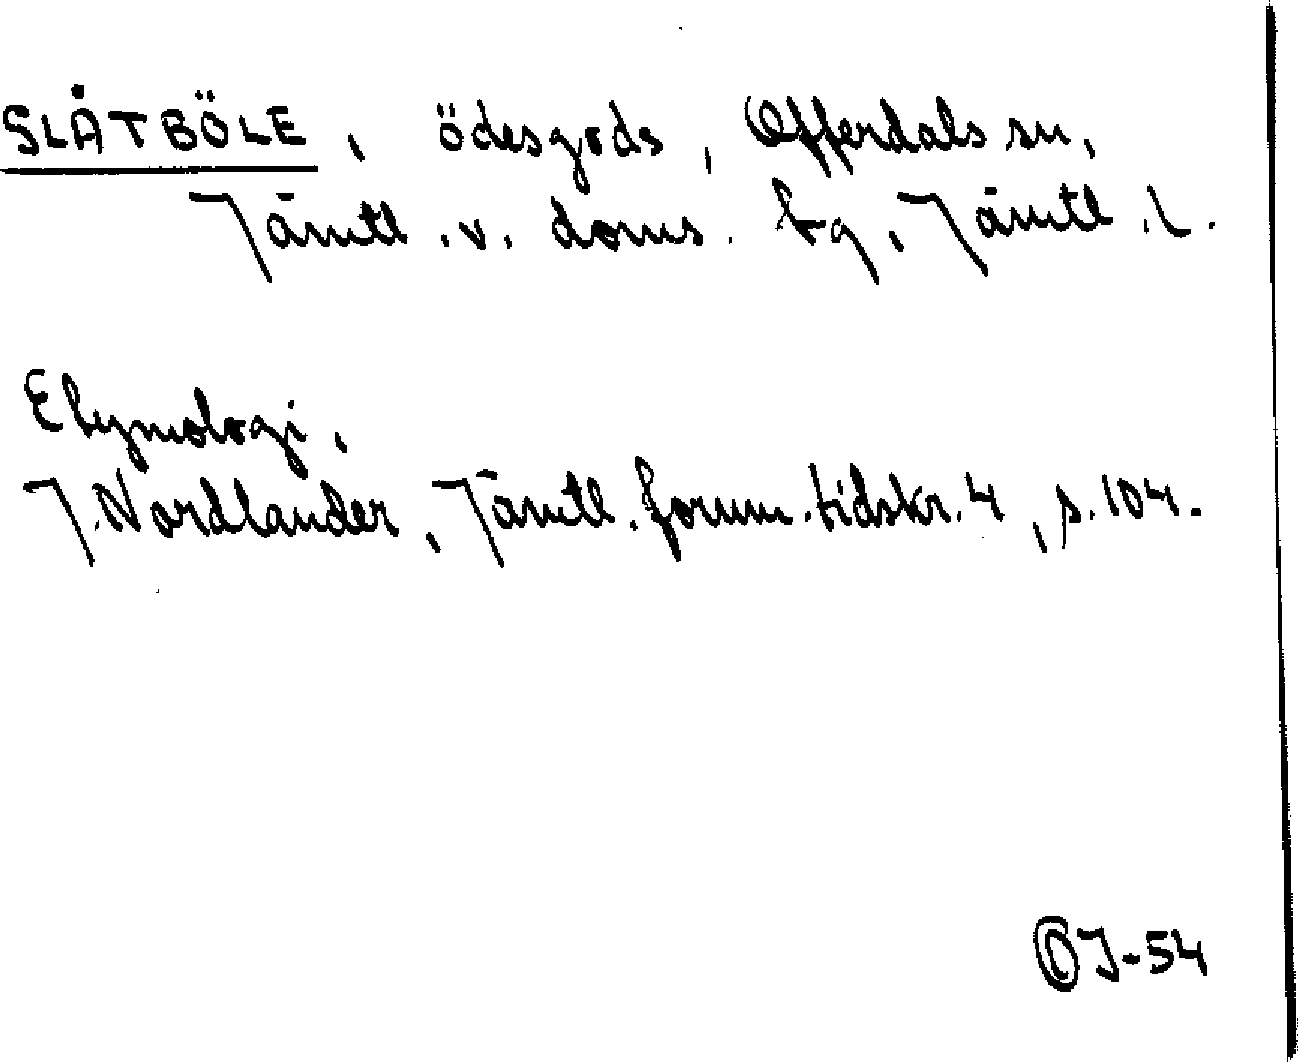 SLÅTBÖLE, ödesgods, Offerdals sn,
Jämtl. v. doms. tg, Jämtl. l.
Etymologi.
J. Nordlander, Jämtl. fornm. tidskr. 4, s. 104.
OJ-54